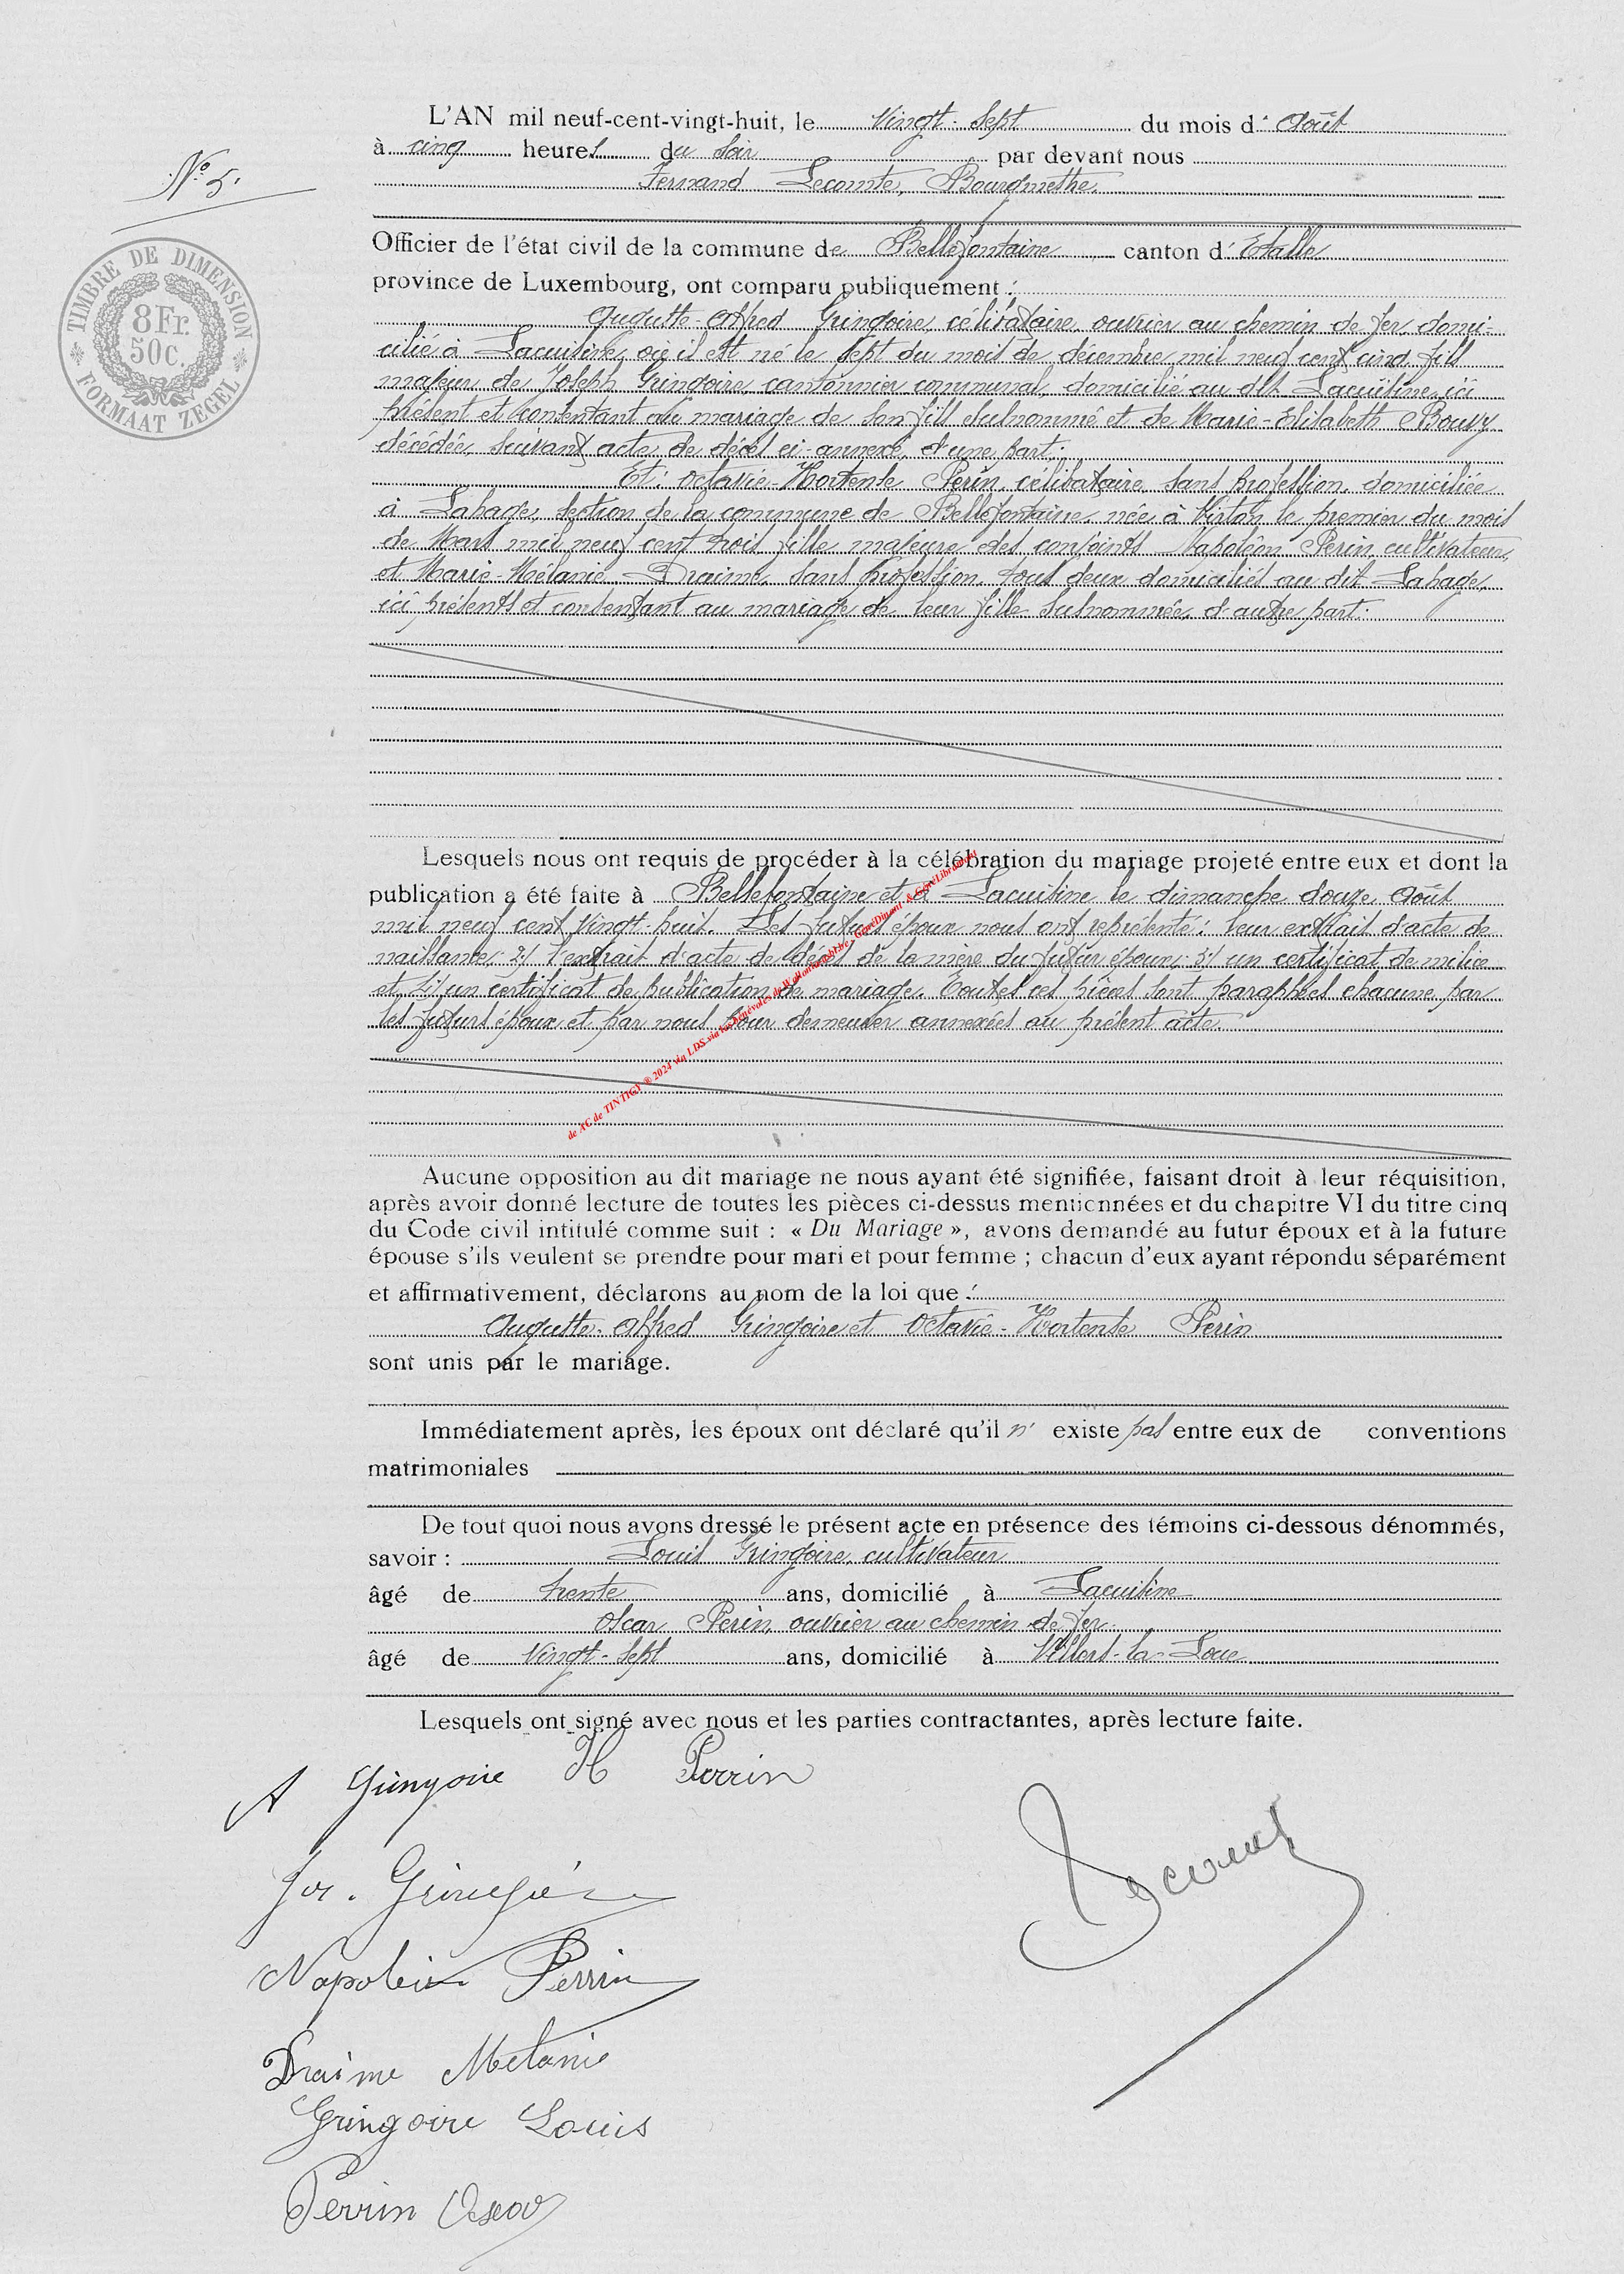 L'AN mil neuf-cent-vingt-huit, le Vingt-Sept du mois d'Août
à cinq heures du soir par devant nous
Fernand Lecomte, Bourgmestre
N° 5.
TIMBRE DE DIMENSION
8 Fr.
50 C.
FORMAAT ZEGEL
Officier de l'état civil de la commune de Bellefontaine canton d'Etalle
province de Luxembourg, ont comparu publiquement :
Auguste-Alfred Gringoire, célibataire, ouvrier au chemin de fer, domi-
cilié à Lacuisine, où il est né le sept du mois de décembre mil neuf cent cinq, fils
majeur de Joseph Gringoire, cantonnier communal, domicilié au dit Lacuisine, ici
présent et consentant au mariage de son fils susnommé et de Marie-Elisabeth Bouvy
décédée, suivant acte de décès ci-annexé, d'une part;
Et: Octavie-Hortense Perin, célibataire, sans profession, domiciliée
à Lahage, section de la commune de Bellefontaine, née à Virton le premier du mois
de Mars mil neuf cent trois, fille majeure des conjoints Napoléon Perin, cultivateur,
et Marie-Mélanie Draime, sans profession, tous deux domiciliés au dit Lahage,
ici présents et consentant au mariage de leur fille susnommée, d'autre part.
Lesquels nous ont requis de procéder à la célébration du mariage projeté entre eux et dont la
publication a été faite à Bellefontaine et à Lacuisine le dimanche douze Août
mil neuf cent vingt-huit. Les futurs époux nous ont représenté: leur extrait d'acte de
naissance; 2/ l'extrait d'acte de décès de la mère du futur époux; 3/ un certificat de milice
et 4/ un certificat de publication de mariage. Toutes ces pièces sont paraphées chacune par
les futurs époux et par nous pour demeurer annexées au présent acte.
de AC de TINTIGY ® 2024 via LDS via les bénévoles de
Aucune opposition au dit mariage ne nous ayant été signifiée, faisant droit à leur réquisition,
après avoir donné lecture de toutes les pièces ci-dessus mentionnées et du chapitre VI du titre cinq
du Code civil intitulé comme suit : « Du Mariage », avons demandé au futur époux et à la future
épouse s'ils veulent se prendre pour mari et pour femme ; chacun d'eux ayant répondu séparément
et affirmativement, déclarons au nom de la loi que :
Auguste-Alfred Gringoire et Octavie-Hortense Perin
sont unis par le mariage.
Immédiatement après, les époux ont déclaré qu'il n' existe pas entre eux de conventions
matrimoniales
De tout quoi nous avons dressé le présent acte en présence des témoins ci-dessous dénommés,
savoir : Louis Gringoire, cultivateur
âgé de trente ans, domicilié à Lacuisine
Oscar Perin, ouvrier au chemin de fer
âgé de vingt-sept ans, domicilié à Villers-la-Loue
Lesquels ont signé avec nous et les parties contractantes, après lecture faite.
A Gringoire H Perrin
Jos. Gringoire
Napoléon Perrin
Draime Mélanie
Gringoire Louis
Perrin Oscar